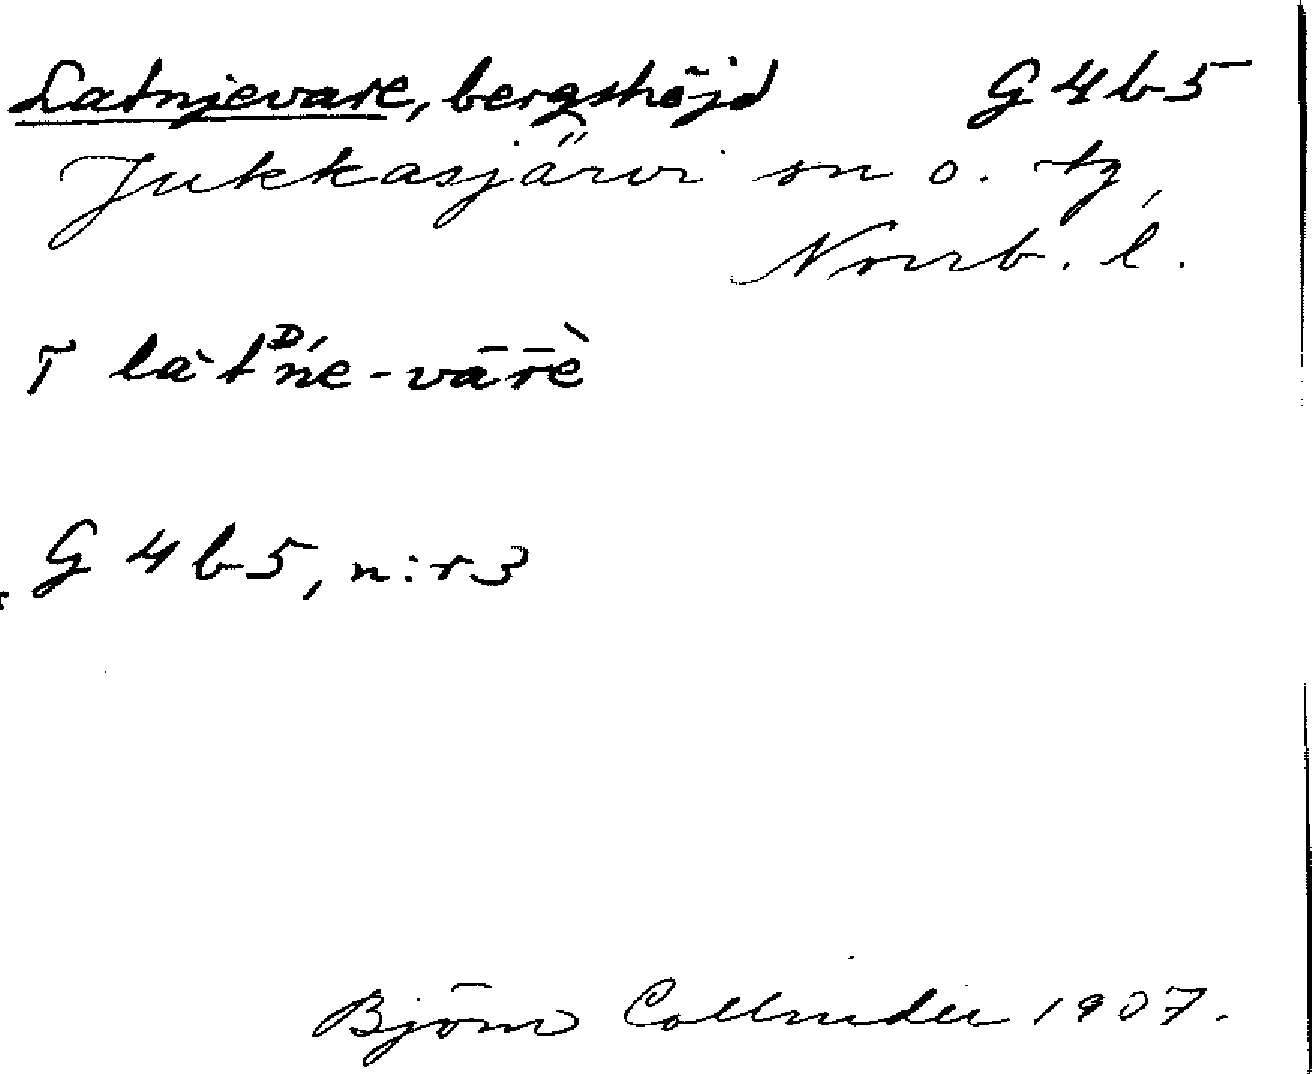 Latnjevare, bergshöjd G 4 b 5
Jukkasjärvi sn o. tg,
Norrb. l.
T làtᴰńe-vārḕ
G 4 b 5, n:r 3
Björn Collinder 1907.